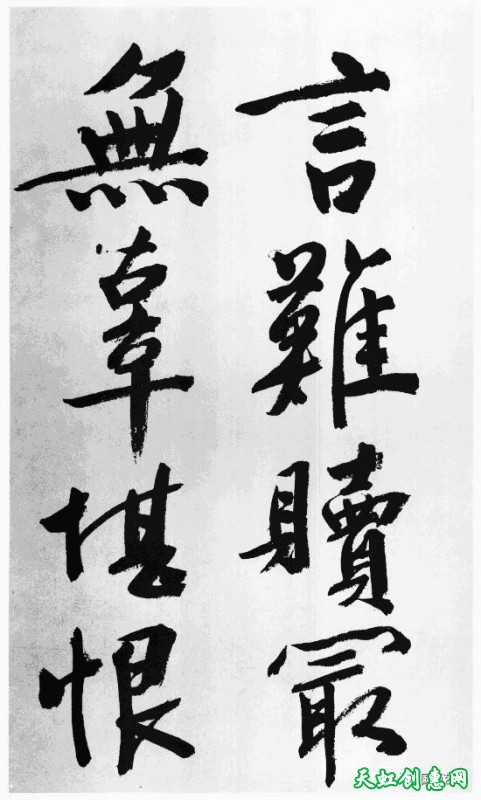 言難贖最
無辜堪恨
天虹创意网